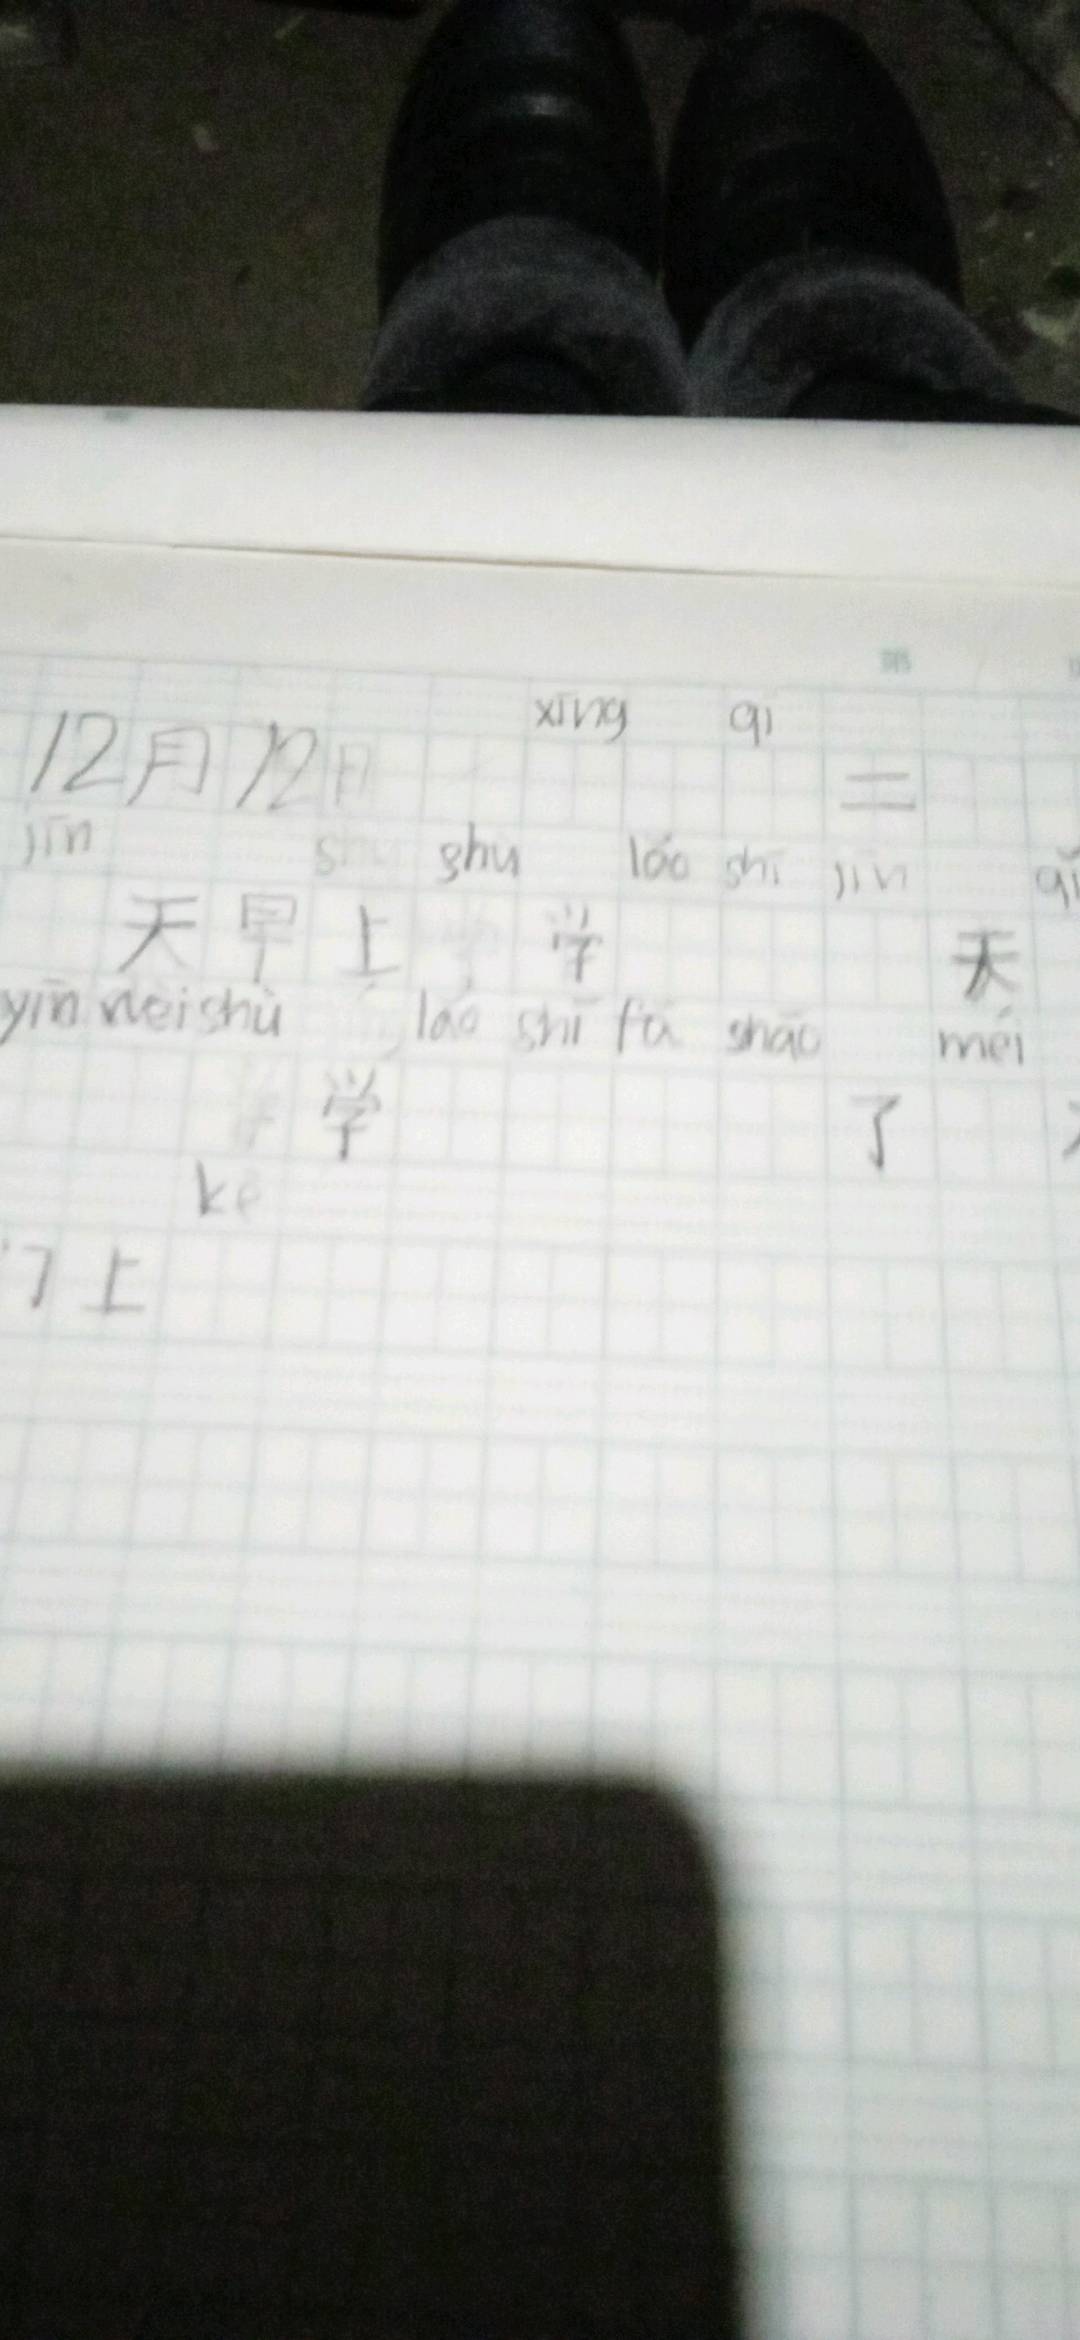 xīng qī
12月12日 二
jīn shù lǎo shī jīn
天早上 学 天
yīn wèi shù lǎo shī fā shāo méi
学 了
kè
门上